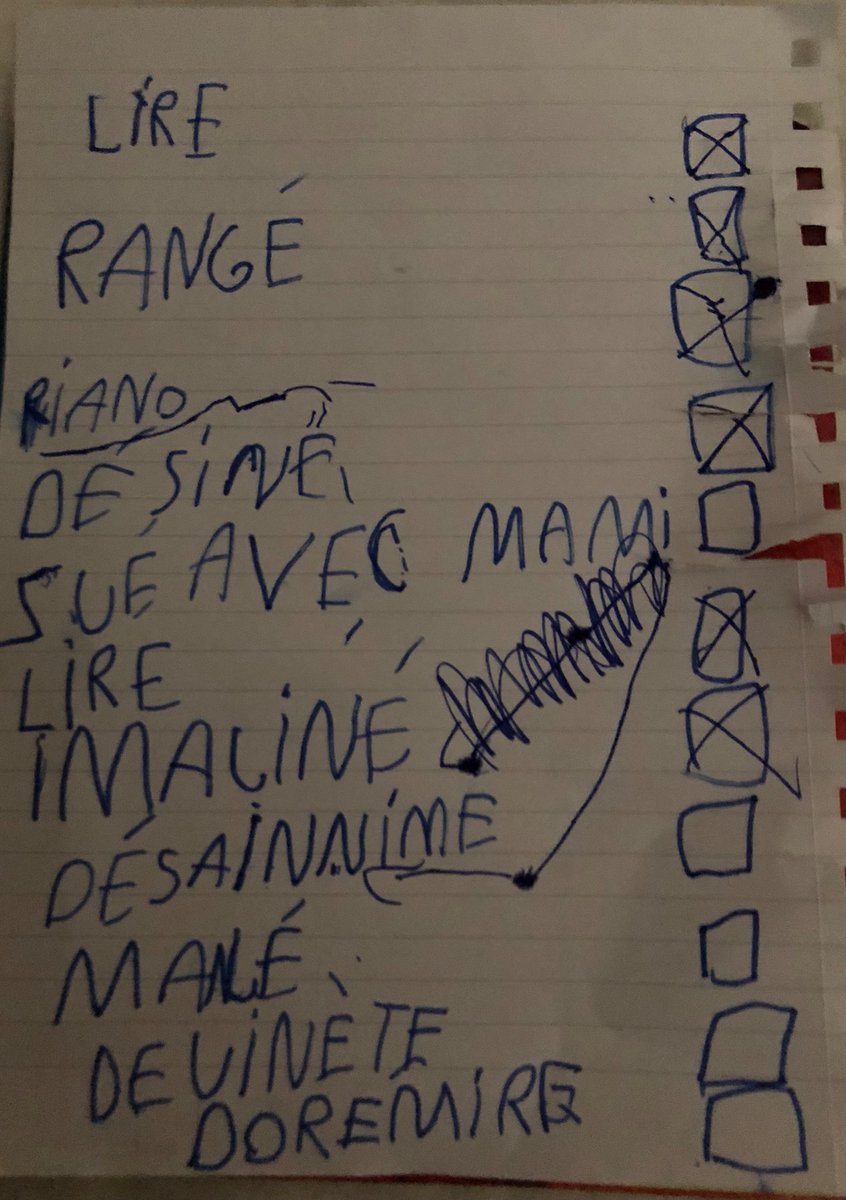 LIRE
RANGÉ
PIANO
DÉSINÉ
SUÉ AVEC MAMI
LIRE
IMAGINÉ
DÉSAINNIME
MANLÉ
DEVINÈTE
DOREMIRE